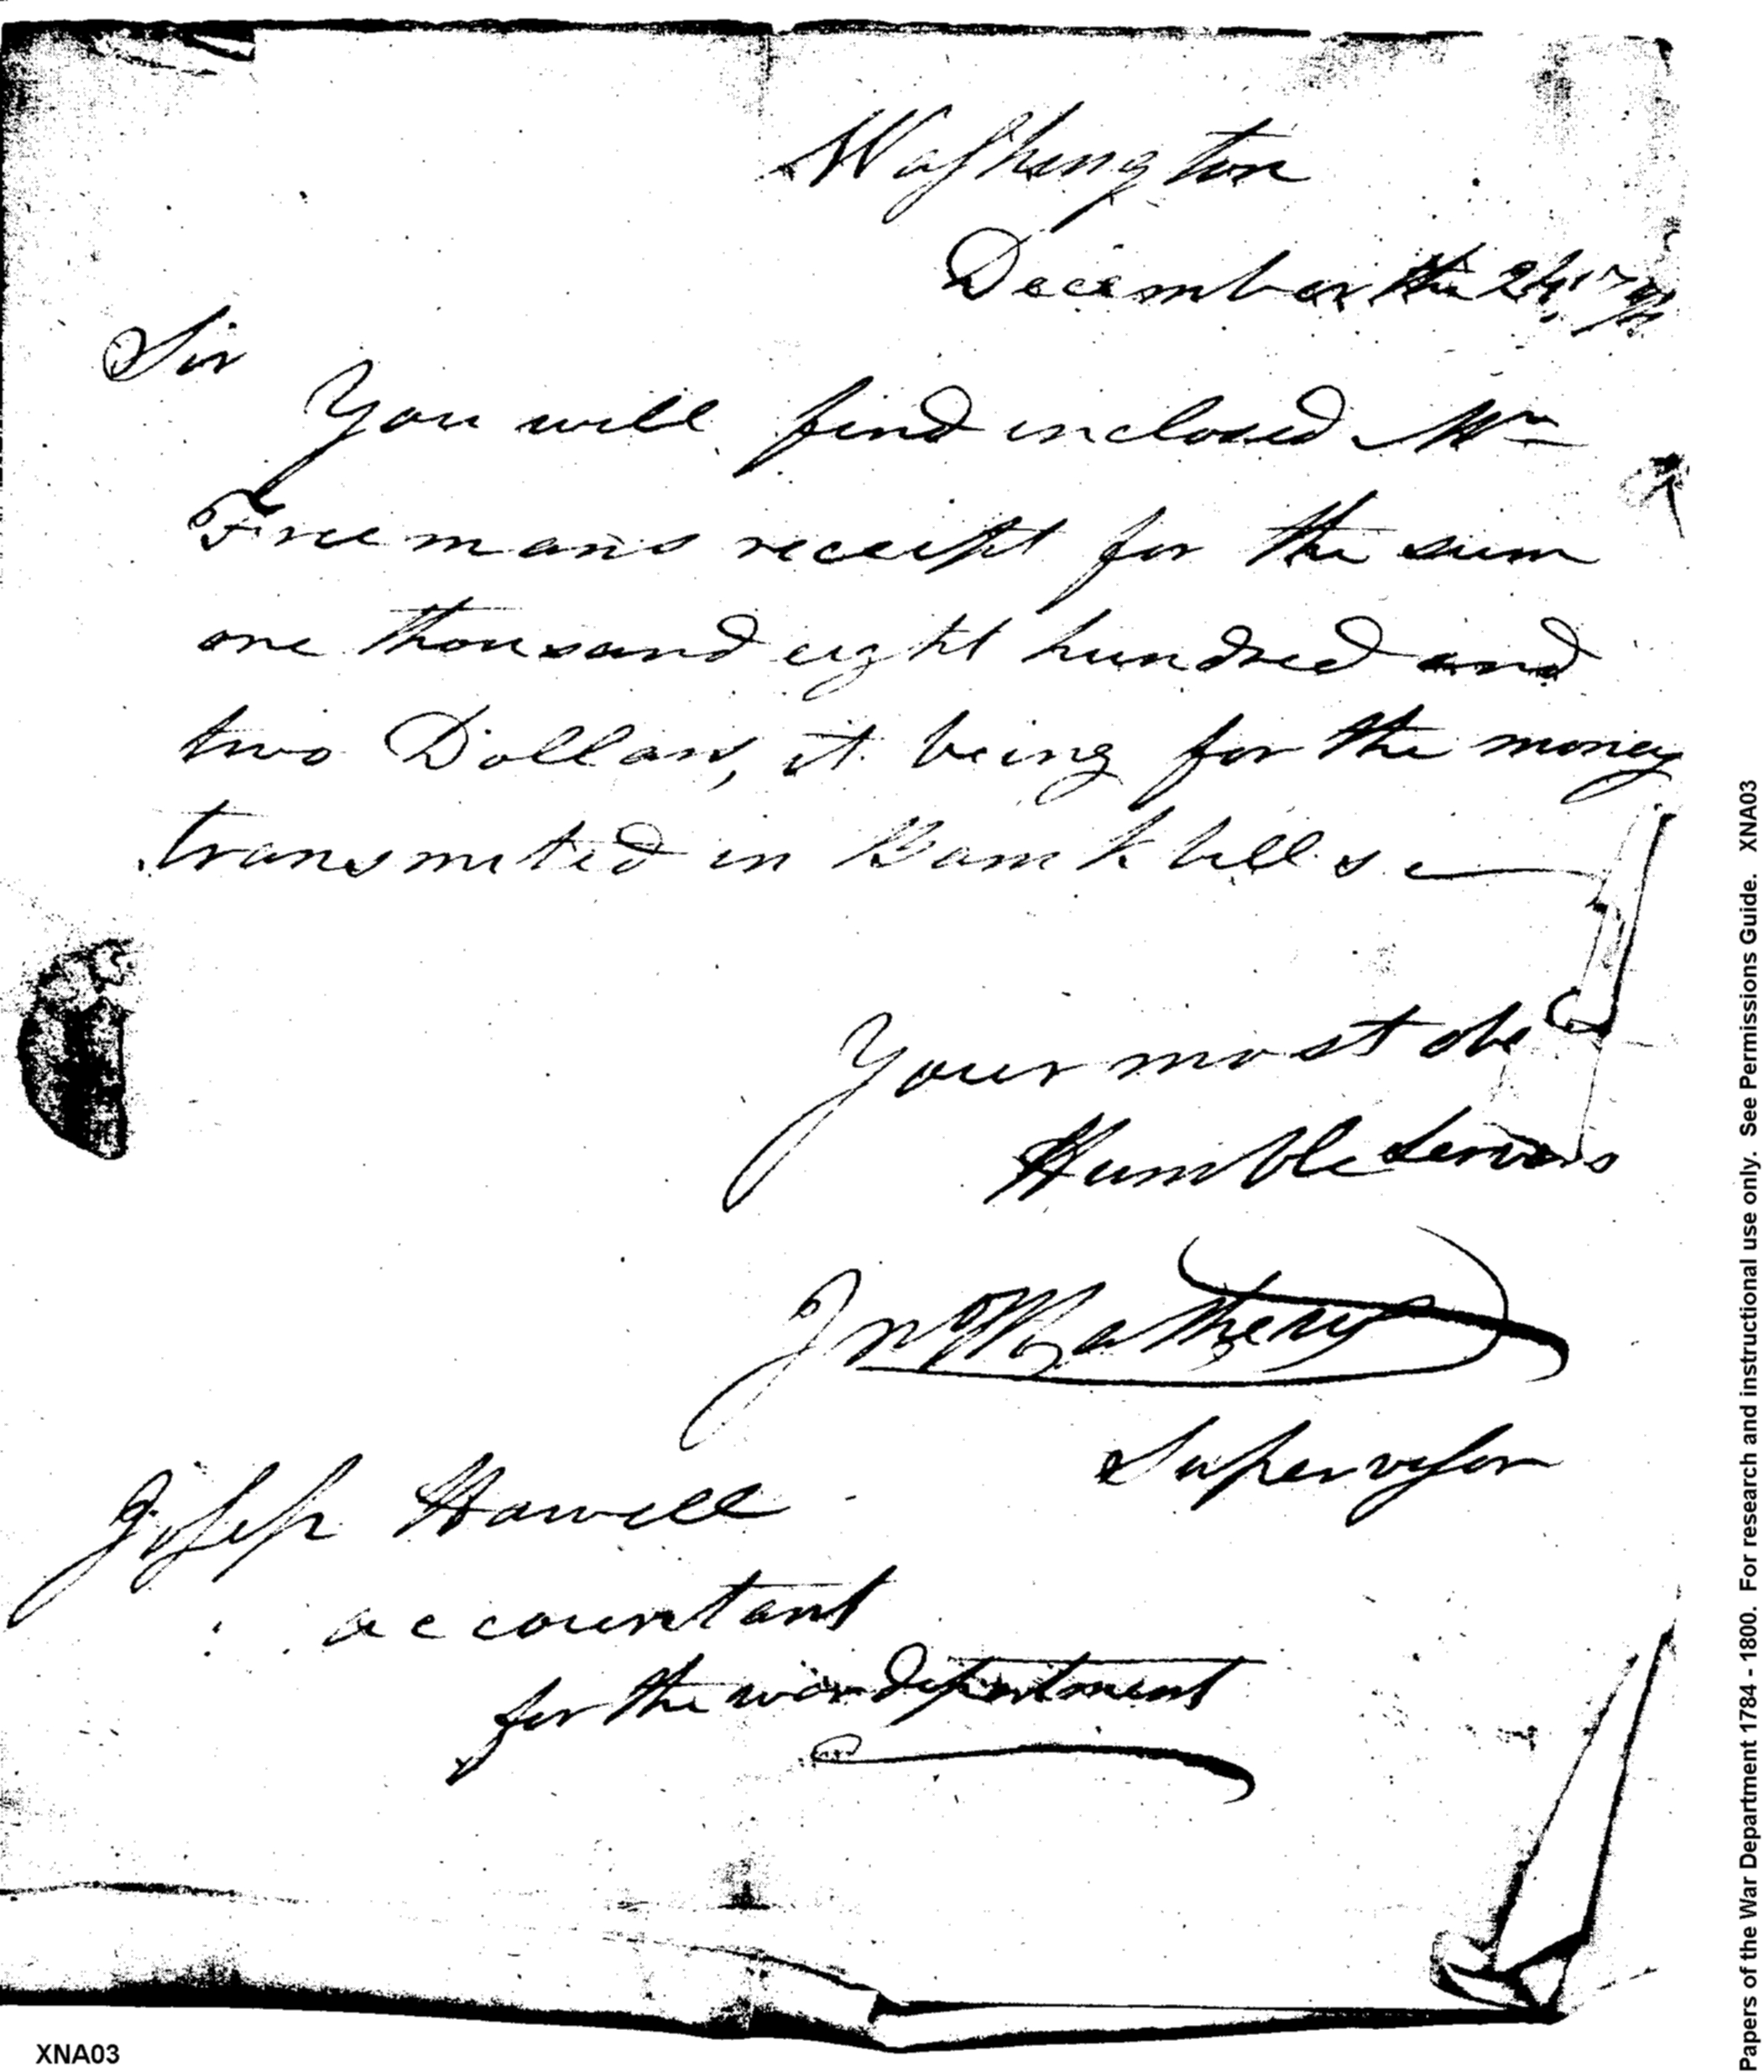 Washington
December the 24, 179
Sir
You will find inclosed Mr
Freemans receipt for the sum
one thousand eight hundred and
two Dollars, it being for the money
transmited in Bank bills
Your most obe
Humble Servans
Jn Mathews
Supervisor
Josep Hawell
accountant
for the war department
XNA03
Papers of the War Department 1784 - 1800. For research and instructional use only. See Permissions Guide. XNA03